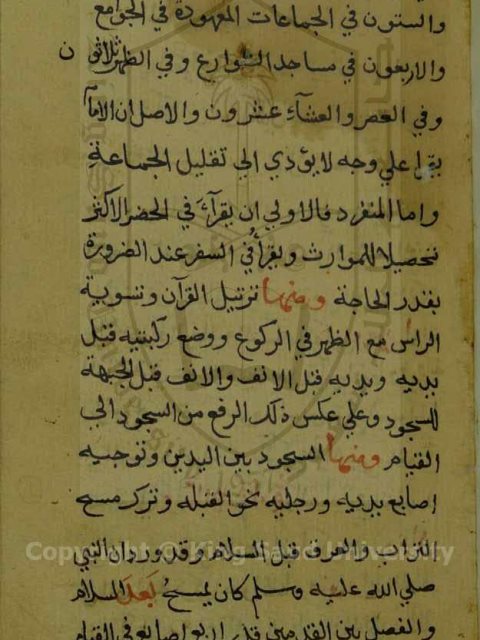 والستون في الجماعات المعهودة في الجوامع
والاربعون في مساجد الشوارع وفي الظهر ثلاثون
وفي العصر والعشآء عشرون والاصل ان الامام
يقرا علي وجه لا يؤدي الي تقليل الجماعة
واما المنفرد فالاولي ان يقرآء في الحضر الاكثر
تحصيلا للموارث ويقرأ في السفر عند الضرورة
بقدر الحاجة ومنها ترتيل القرآن وتسوية
الراس مع الظهر في الركوع ووضع ركبتيه قبل
يديه ويديه قبل الانف والانف قبل الجبهة
للسجود وعلي عكس ذلك الرفع من السجود الي
القيام ومنها السجود بين اليدين وتوجيه
اصابع يديه ورجليه نحو القبله وترك مسح
التراب والعرق قبل السلام وقد ورد ان النبي
صلي الله عليه وسلم كان يمسح بعد السلام
والفصل بين القدمين قدر اربع اصابع في القيام
Copyright © King Saud University